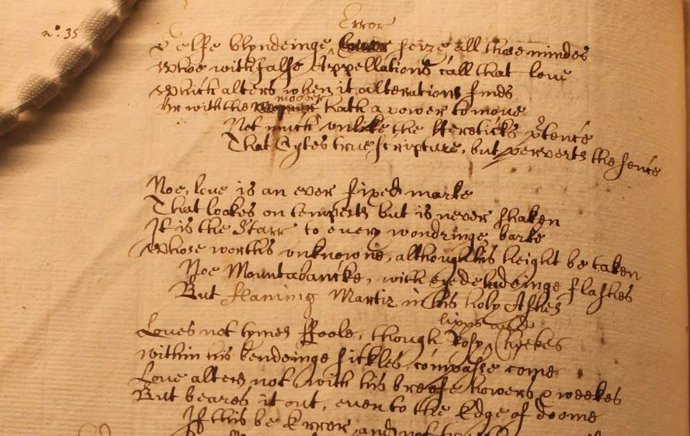 n°. 35
Error
Selfe blyndeinge seize all those mindes
Whoe with false Appellations call that love
Which alters when it alterations finds
mover
Or with the hath a power to move
Not much unlike the Hereticks ptence
That Cytes true Scripture, but perverts the sence
Noe, love is an ever fixed marke
That lookes on tempests but is never shaken
It is the Starr to every wondringe barke
Whose worths unknowne, although his height be taken
Noe Mountabancke, with eye deludeinge flashes
But flaming Martir in his holy Ashes
lipps and
Loves not tymes ffoole, though Rosy Cheekes
Within his bendeinge sickles, compasse come
Love alters not with his breefe howers & weekes
But beares it out, even to the Edge of doome
If this be Error, and not